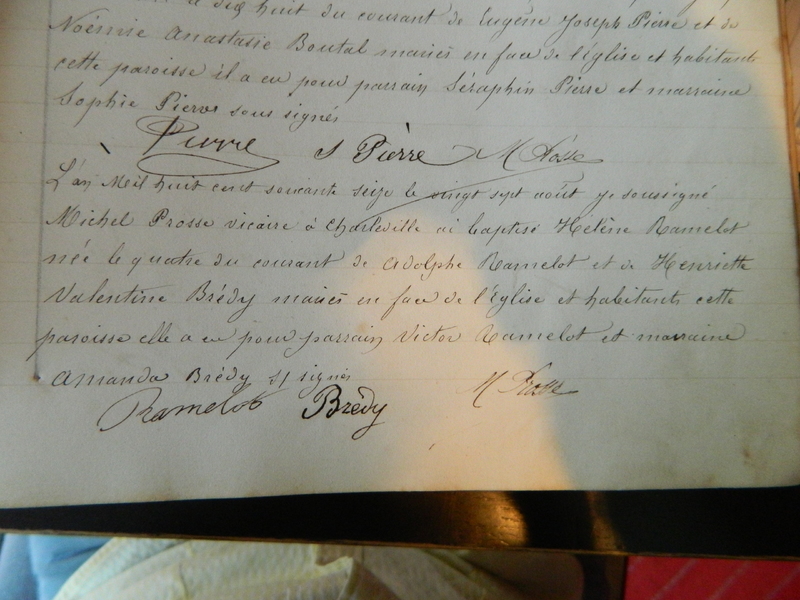 dix huit du courant de Eugène Joseph Pierre et de
Noémie Anastasie Boutal mariés en face de l'église et habitants
cette paroisse il a eu pour parrain Séraphin Pierre et marraine
Sophie Pierre sous signés
Pierre S Pierre M Prosse
L'an Mil huit cent soixante seize le vingt sept août je soussigné
Michel Prosse vicaire à Charleville ai baptisé Hélène Ramelot
née le quatre du courant de Adolphe Ramelot et de Henriette
Valentine Brédy mariés en face de l'église et habitants cette
paroisse elle a eu pour parrain Victor Ramelot et marraine
Amanda Brédy s/ signés
Ramelot Brédy M Prosse